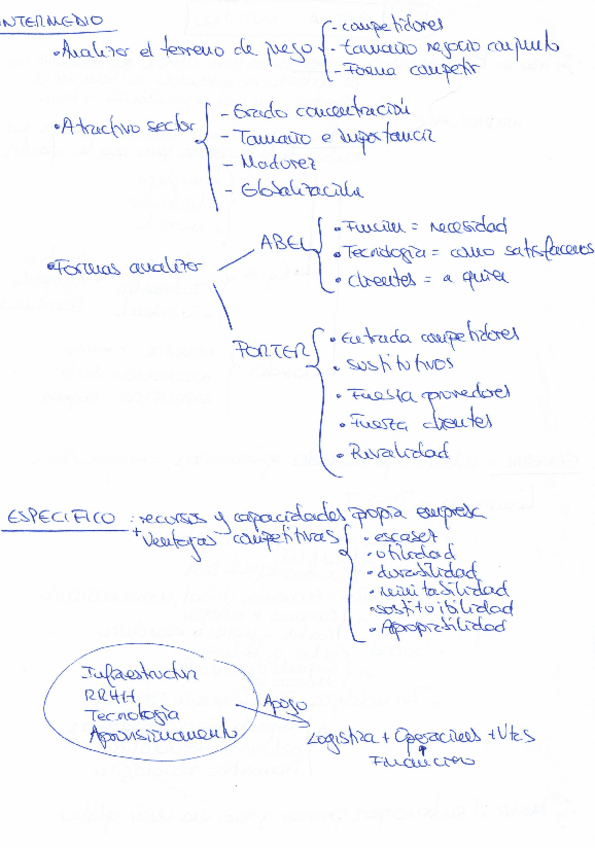 INTERMEDIO
• Analizar el terreno de juego
- competidores
- tamaño negocio conjunto
- Forma competir
• Atractivo sector
- Grado concentración
- Tamaño e importancia
- Madurez
- Globalización
• Formas analizar
ABEL
• Función = necesidad
• Tecnología = como satisfacemos
• clientes = a quien
PORTER
• Entrada competidores
• sustitutivos
• Fuerza proveedores
• Fuerza clientes
• Rivalidad
ESPECIFICO : recursos y capacidades propia empresa
+ Ventajas competitivas
• escasez
• utilidad
• durabilidad
• imitabilidad
• sostituibilidad
• Apropiabilidad
Infraestructura
RRHH
Tecnología
Aprovisionamiento
Apoyo
Logistica + Operaciones + Vtas
Financiero